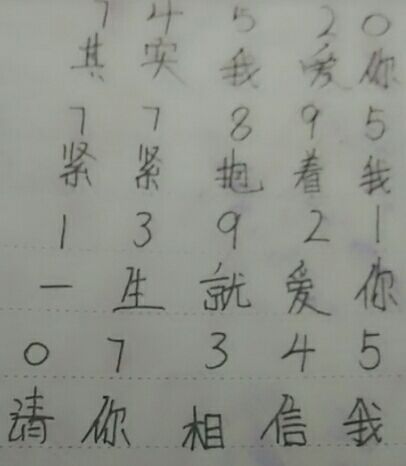 7 4 5 2 0
其 实 我 爱 你
7 7 8 9 5
紧 紧 抱 着 我
1 3 9 2 1
一 生 就 爱 你
0 7 3 4 5
请 你 相 信 我